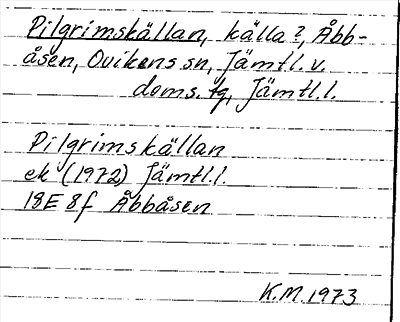 Pilgrimskällan, källa?, Åbb-
åsen, Ovikens sn, Jämtl. v.
doms. tg, Jämtl.l.
Pilgrimskällan
ek (1972) Jämtl.l.
18E 8f Åbbåsen
K.M. 1973